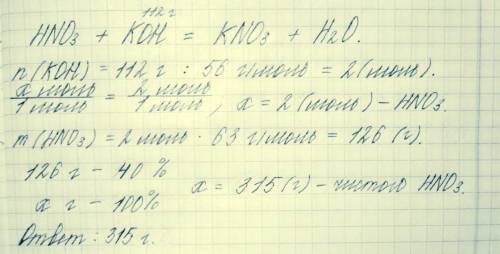 112 г
HNO3 + KOH = KNO3 + H2O.
n(KOH) = 112 г : 56 г/моль = 2 (моль).
x моль / 1 моль = 2 моль / 1 моль, x = 2 (моль) – HNO3.
m(HNO3) = 2 моль · 63 г/моль = 126 (г).
126 г – 40 %
x г – 100%
x = 315 (г) – чистого HNO3.
Ответ: 315 г.